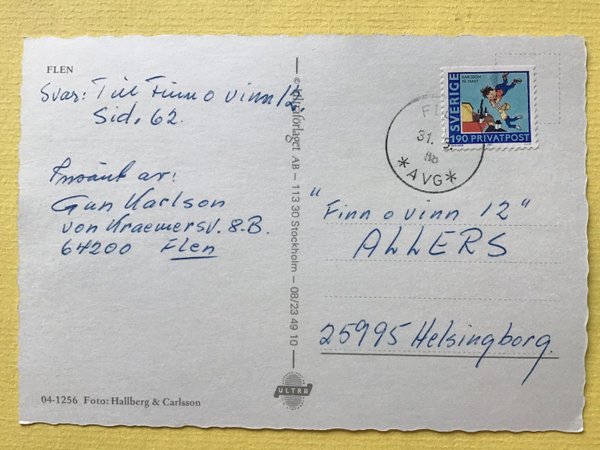 FLEN
Svar: Till Finn o vinn 12
Sid. 62.
Insänt av:
Gun Karlson
von Kraemersv. 8.B.
64200 Flen
04-1256 Foto: Hallberg & Carlsson
AB — 113 30 Stockholm — 08/23 49 10
ULTRA
31.
*AVG*
SVERIGE
KARLSSON PÅ TAKET
190 PRIVATPOST
"Finn o vinn 12"
ALLERS
25995 Helsingborg.